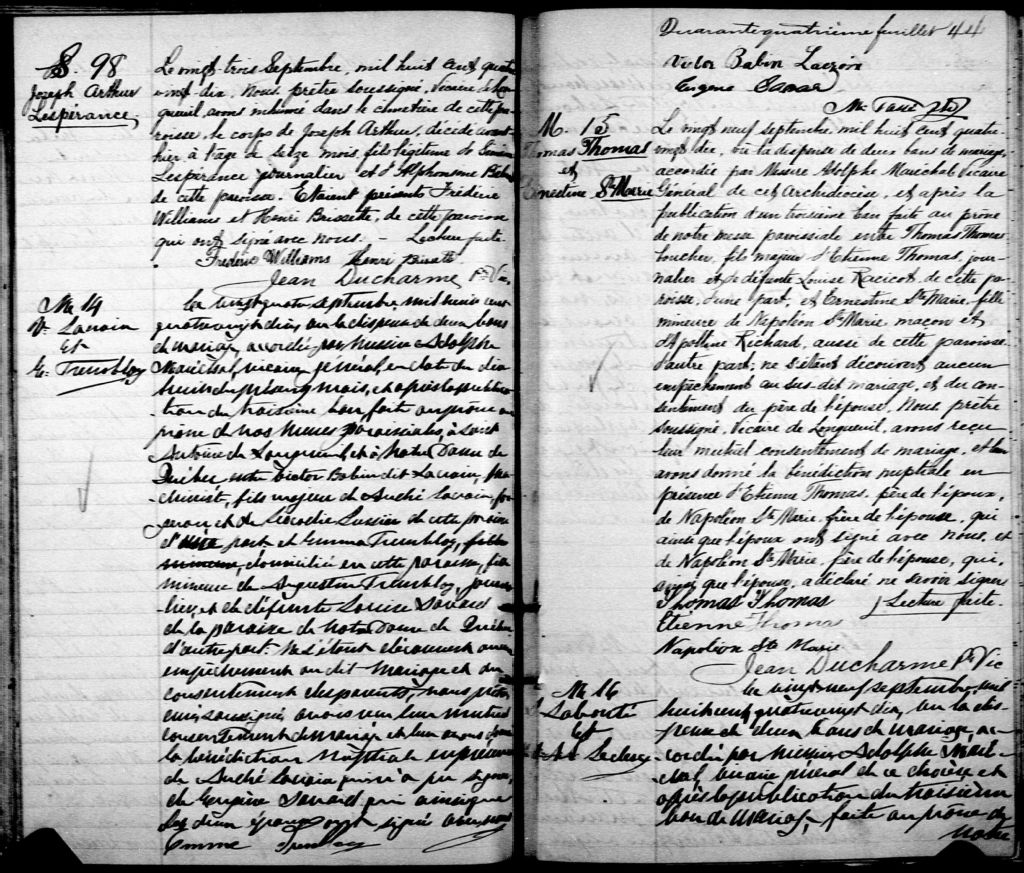 S. 98
Joseph Arthur
Lespérance
Le vingt trois Septembre, mil huit cent quatre
vingt dix. Nous prêtre soussigné, Vicaire de Lon
gueuil, avons inhumé dans le cimetière de cette pa
roisse, le corps de Joseph Arthur, décédé avant
hier à l'âge de seize mois, fils légitime de
Lespérance journalier et d'Alphonsine
de cette paroisse. Etaient présents Frédéric
Williams et Henri Brissette, de cette paroisse
qui ont signé avec nous. – Lecture faite.
Frédéric Williams Henri
Jean Ducharme Ptre Vic.
M. 14
V. Lacroix
et
E. Tremblay
Le vingt quatre Septembre, mil huit cent
quatre vingt dix, vu la dispense de deux bans
de mariage, accordée par Messire Adolphe
Maréchal, vicaire général, en date du dix
huit du présent mois, et après la publica
tion du troisième ban faite au prône au
prône de nos Messes paroissiales, à Saint
Antoine de Longueuil et à Notre Dame de
Québec entre Victor Babin dit Lacroix, ma
chiniste, fils majeur de André Lacroix, for
geron et de Léocadie Lussier de cette paroisse
d'une part et Emma Tremblay, fille
mineure domiciliée en cette paroisse, fille
mineure de Augustin Tremblay, journa
lier, et de défunte Louise Savard
de la paroisse de Notre Dame de Québec
d'autre part. Ne s'étant découvert aucun
empêchement au dit mariage et du
consentement des parents, nous prêtre
curé soussigné, avons reçu leur mutuel
consentement de mariage et leur avons donné
la bénédiction nuptiale en présence
de André Lacroix qui n'a pu signer,
de Savard qui ainsi que
les deux époux ont signé avec nous
Emma Tremblay
Quarante quatrième feuillet 44
Victor Babin Lacroix
Eugène
M. 15
Thomas Thomas
et
Ernestine Ste Marie
Le vingt neuf septembre, mil huit cent quatre
vingt dix, vu la dispense de deux bans de mariage,
accordée par Messire Adolphe Maréchal Vicaire
Général de cet Archidiocèse, et après la
publication d'un troisième ban faite au prône
de notre messe paroissiale entre Thomas Thomas
boucher, fils majeur d'Etienne Thomas, jour
nalier et de défunte Louise Racicot, de cette pa
roisse, d'une part, et Ernestine Ste Marie, fille
mineure de Napoléon Ste Marie, maçon et
d'Apolline Richard, aussi de cette paroisse
d'autre part; ne s'étant découvert aucun
empêchement au sus-dit mariage, et du con
sentement du père de l'épouse, Nous prêtre
soussigné, Vicaire de Longueuil, avons reçu
leur mutuel consentement de mariage, et leur
avons donné la bénédiction nuptiale en
présence d'Etienne Thomas, père de l'époux,
de Napoléon Ste Marie, frère de l'épouse, qui
ainsi que l'époux ont signé avec nous, et
de Napoléon Ste Marie, père de l'épouse, qui,
ainsi que l'épouse, a déclaré ne savoir signer
Thomas Thomas Lecture faite.
Etienne Thomas
Napoléon Ste Marie
Jean Ducharme Ptre Vic
M. 16
Labonté
et
Leclerc
Le vingt neuf septembre, mil
huit cent quatre vingt dix, vu la dis
pense de deux bans de mariage, ac
cordée par Messire Adolphe Maré
chal, vicaire général de ce diocèse et
après la publication du troisième
ban de mariage, faite au prône de
notre